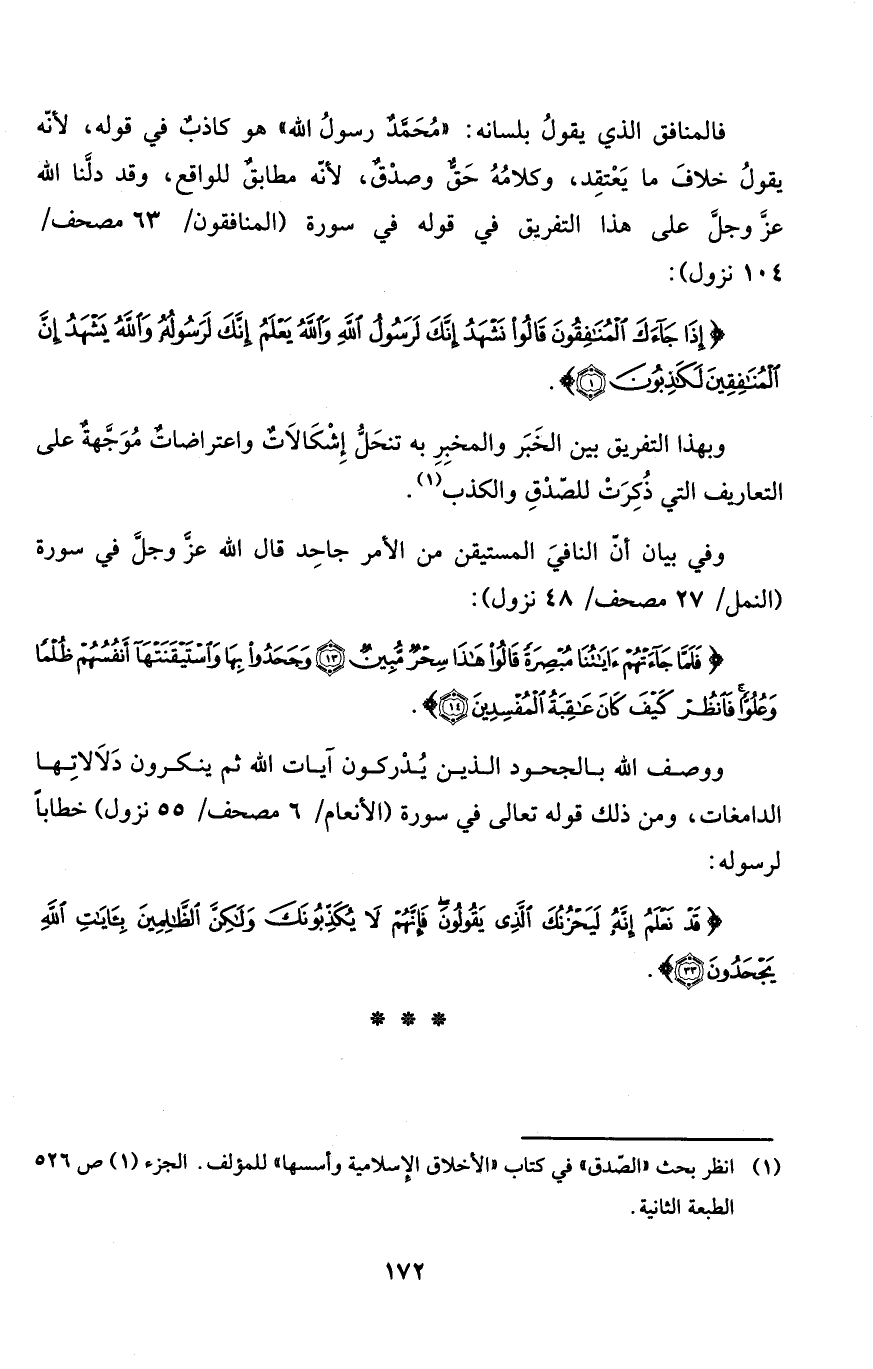 فالمنافق الذي يقولُ بلسانه: «مُحَمَّدٌ رسولُ الله» هو كاذبٌ في قوله، لأنّه
يقولُ خلافَ ما يَعْتقِد، وكلامُهُ حَقٌّ وصدْقٌ، لأنّه مطابقٌ للواقع، وقد دلَّنا الله
عزَّ وجلَّ على هذا التفريق في قوله في سورة (المنافقون/ ٦٣ مصحف/
١٠٤ نزول):
﴿ إِذَا جَآءَكَ ٱلْمُنَٰفِقُونَ قَالُوا۟ نَشْهَدُ إِنَّكَ لَرَسُولُ ٱللَّهِ وَٱللَّهُ يَعْلَمُ إِنَّكَ لَرَسُولُهُۥ وَٱللَّهُ يَشْهَدُ إِنَّ
ٱلْمُنَٰفِقِينَ لَكَٰذِبُونَ ١ ﴾.
وبهذا التفريق بين الخَبَر والمخبِرِ به تنحَلُّ إشْكَالَاتٌ واعتراضاتٌ مُوَجَّهةٌ على
التعاريف التي ذُكِرَتْ للصّدْقِ والكذب(١).
وفي بيان أنّ النافيَ المستيقن من الأمر جاحِد قال الله عزَّ وجلَّ في سورة
(النمل/ ٢٧ مصحف/ ٤٨ نزول):
﴿ فَلَمَّا جَآءَتْهُمْ ءَايَٰتُنَا مُبْصِرَةً قَالُوا۟ هَٰذَا سِحْرٌ مُّبِينٌ ١٣ وَجَحَدُوا۟ بِهَا وَٱسْتَيْقَنَتْهَآ أَنفُسُهُمْ ظُلْمًا
وَعُلُوًّا ۚ فَٱنظُرْ كَيْفَ كَانَ عَٰقِبَةُ ٱلْمُفْسِدِينَ ١٤ ﴾.
ووصف الله بالجحود الذين يُدْركون آيات الله ثم ينكرون دَلَالاتِها
الدامغات، ومن ذلك قوله تعالى في سورة (الأنعام/ ٦ مصحف/ ٥٥ نزول) خطاباً
لرسوله:
﴿ قَدْ نَعْلَمُ إِنَّهُۥ لَيَحْزُنُكَ ٱلَّذِى يَقُولُونَ ۖ فَإِنَّهُمْ لَا يُكَذِّبُونَكَ وَلَٰكِنَّ ٱلظَّٰلِمِينَ بِـَٔايَٰتِ ٱللَّهِ
يَجْحَدُونَ ٣٣ ﴾.
* * *
(١) انظر بحث «الصّدق» في كتاب «الأخلاق الإسلامية وأسسها» للمؤلف. الجزء (١) ص ٥٢٦
الطبعة الثانية.
١٧٢